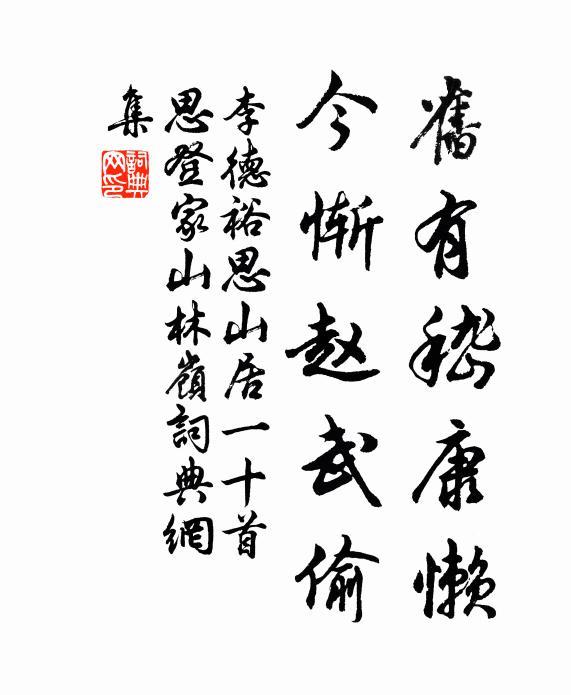 舊有嵇康懶
今慚赵武偷
李德裕思山居一十首
思登家山林嶺詞典網
集
詞典
网印